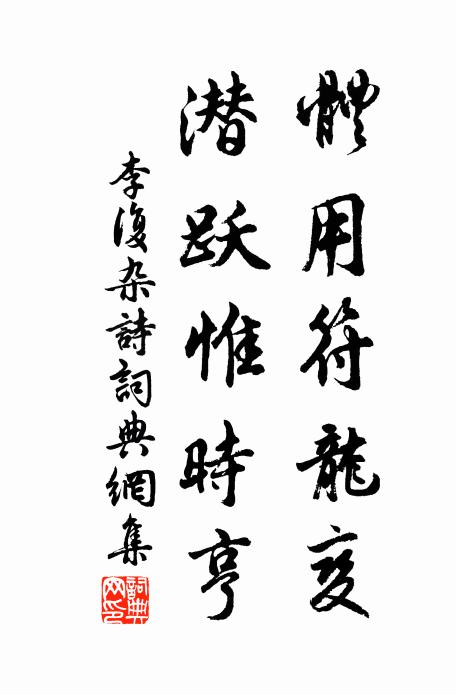 體用符龍變
潛跃惟時亨
李復杂詩詞典網集
詞典网印